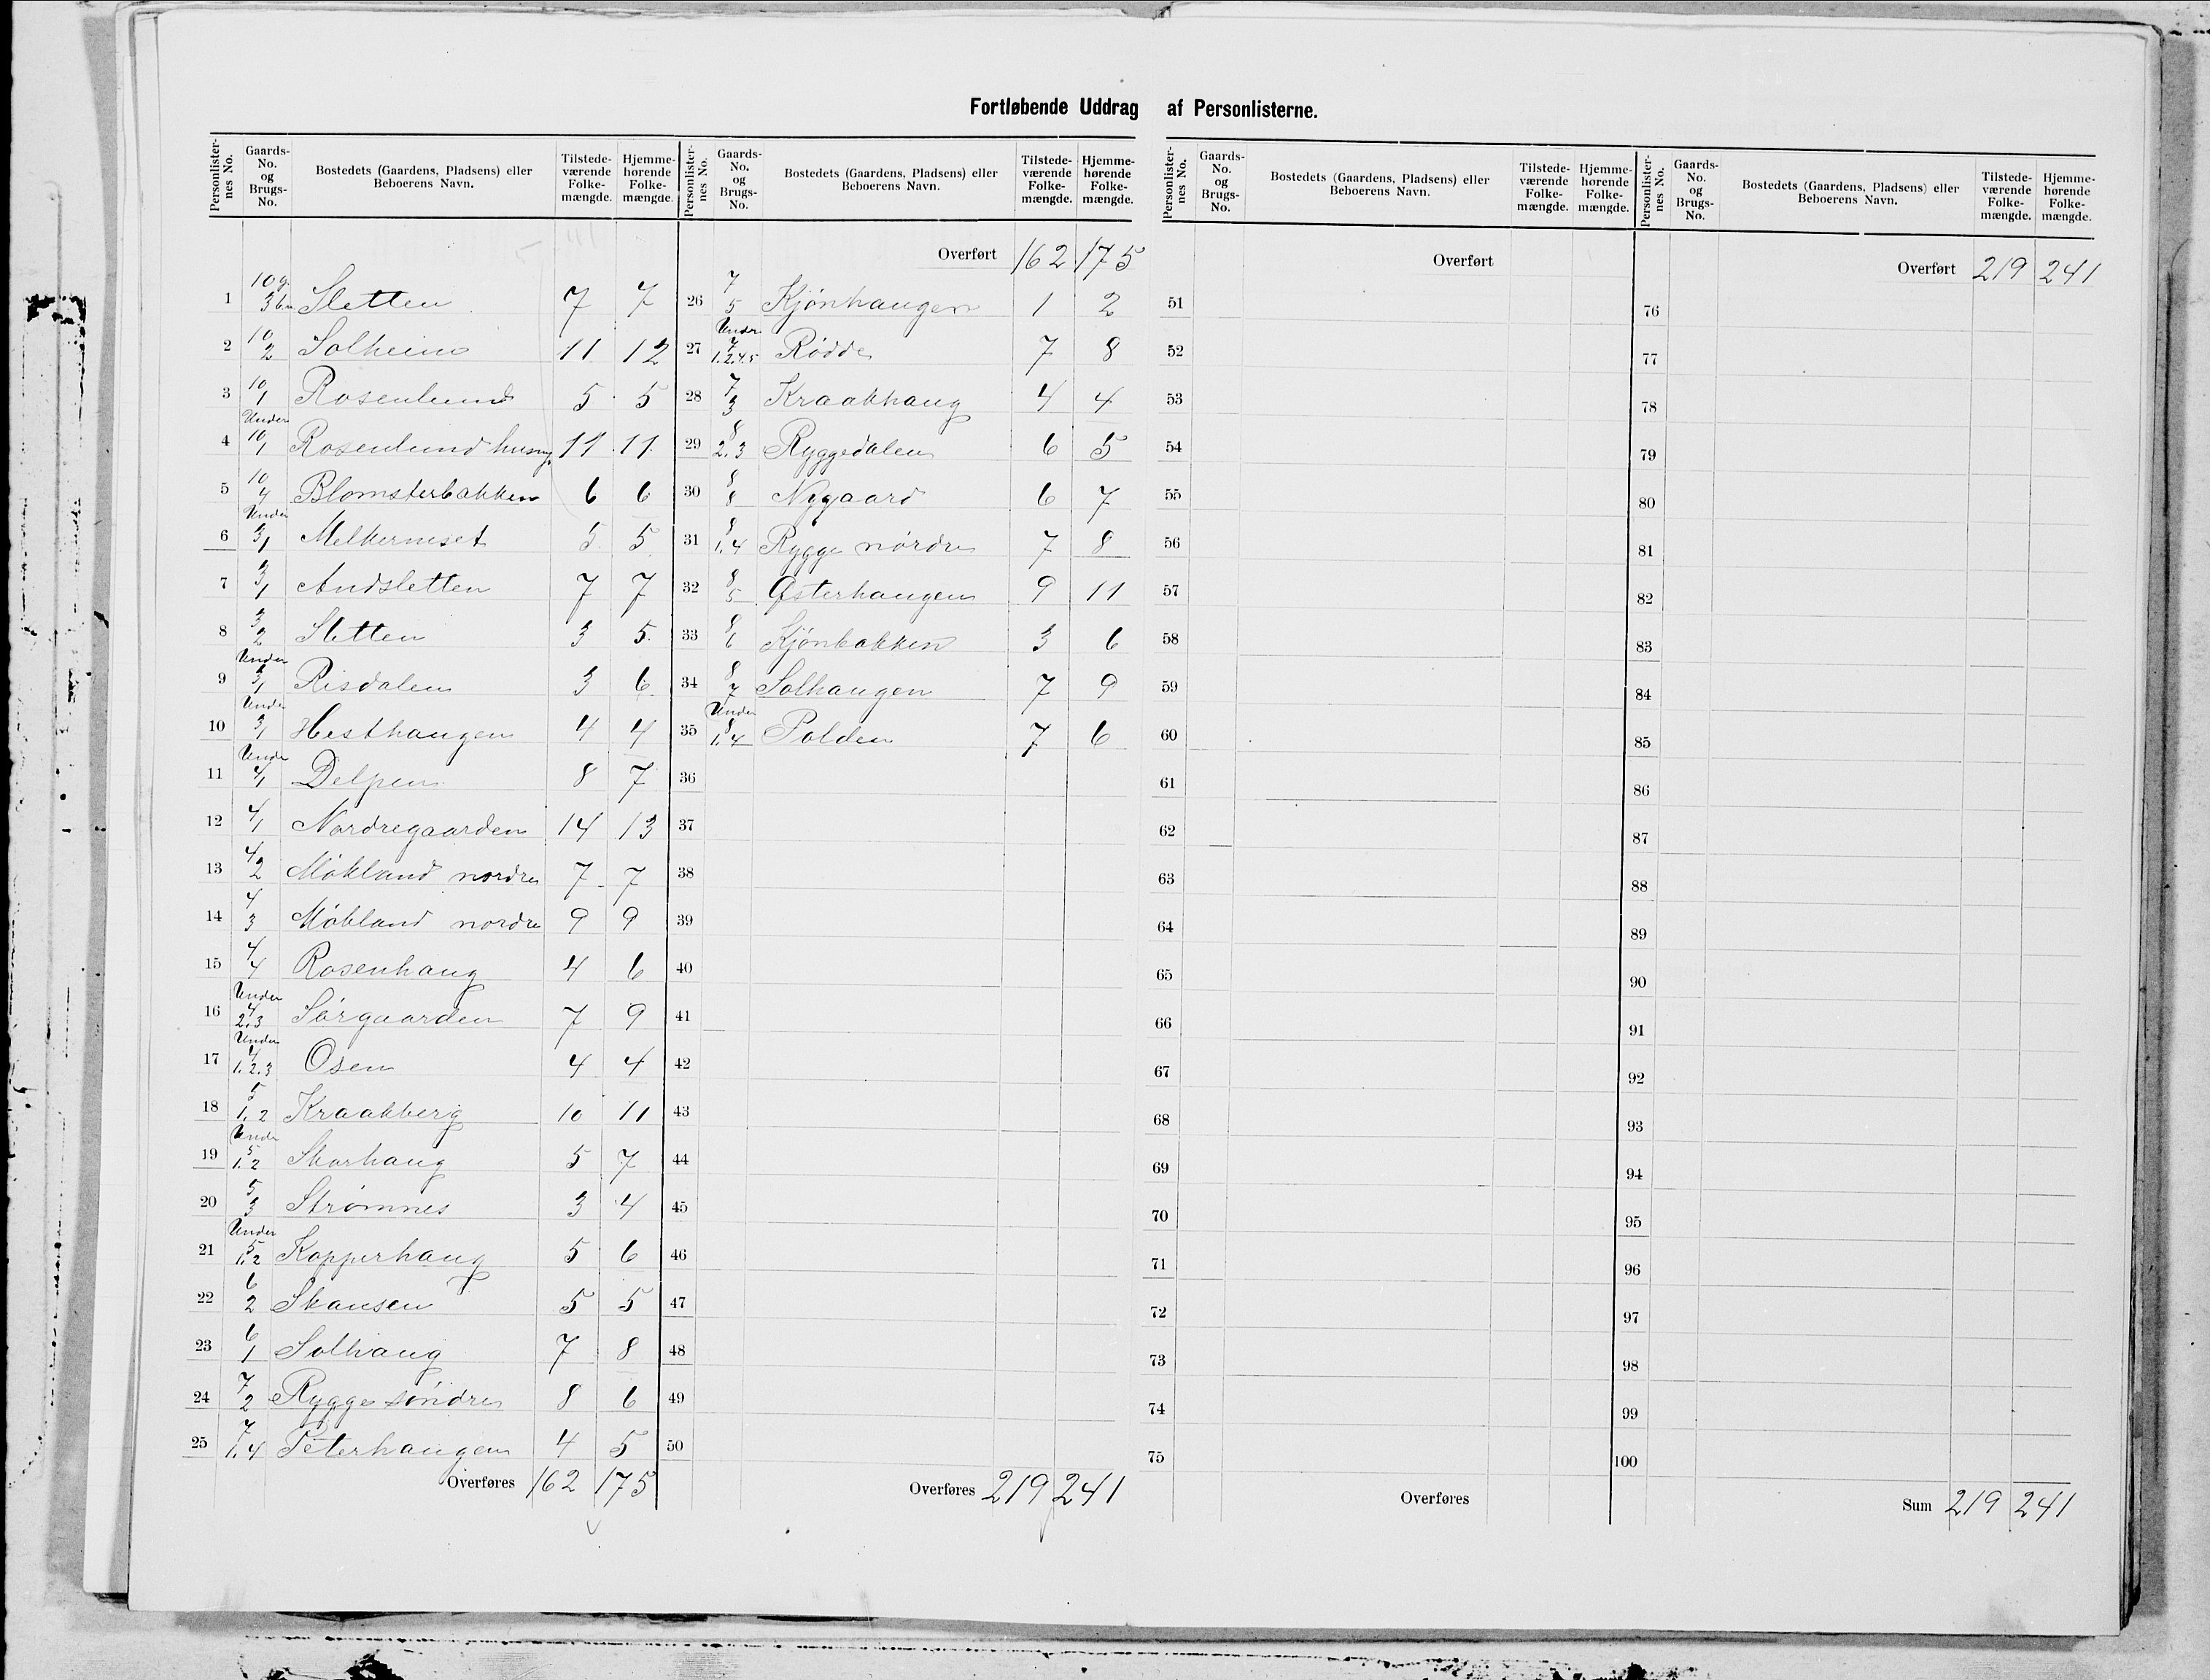 Fortløbende Uddrag af Personlisterne.
Personlister-nes No. | Gaards-No. og Brugs-No. | Bostedets (Gaardens, Pladsens) eller Beboerens Navn. | Tilstede-værende Folke-mængde. | Hjemme-hørende Folke-mængde.
1 | 10 g. 3 bn | Sletten | 7 | 7
2 | 10/2 | Solheim | 11 | 12
3 | 10/1 | Rosenlund | 5 | 5
4 | Under 10/1 | Rosenlund husmp. | 11 | 11
5 | 10/4 | Blomsterbakken | 6 | 6
6 | Under 3/1 | Melkerneset | 5 | 5
7 | 3/1 | Andsletten | 7 | 7
8 | 3/2 | Sletten | 3 | 5
9 | Under 3/1 | Risdalen | 3 | 6
10 | Under 3/1 | Hesthaugen | 4 | 4
11 | Under 4/1 | Delpen | 8 | 7
12 | 4/1 | Nordregaarden | 14 | 13
13 | 4/2 | Møkland nordre | 7 | 7
14 | 4/3 | Møkland nordre | 9 | 9
15 | 4/4 | Rosenhaug | 4 | 6
16 | Under 4/2.3 | Sørgaarden | 7 | 9
17 | Under 4/1.2.3 | Osen | 4 | 4
18 | 5/1.2 | Kraakberg | 10 | 11
19 | Under 5/1.2 | Skarhaug | 5 | 7
20 | 5/3 | Strømnes | 3 | 4
21 | Under 5/1.2 | Kopperhaug | 5 | 6
22 | 6/2 | Skansen | 5 | 5
23 | 6/1 | Solhaug | 7 | 8
24 | 7/2 | Rygge søndre | 8 | 6
25 | 7/1.4 | Peterhaugen | 4 | 5
Overføres | 162 | 175
Personlister-nes No. | Gaards-No. og Brugs-No. | Bostedets (Gaardens, Pladsens) eller Beboerens Navn. | Tilstede-værende Folke-mængde. | Hjemme-hørende Folke-mængde.
Overført | 162 | 175
26 | 7/5 | Kjønhaugen | 1 | 2
27 | Under 7/1.2.4.5 | Rødde | 7 | 8
28 | 7/3 | Kraakhaug | 4 | 4
29 | 8/2.3 | Ryggedalen | 6 | 5
30 | 8/8 | Nygaard | 6 | 7
31 | 8/1.4 | Rygge nordre | 7 | 8
32 | 8/5 | Østerhaugen | 9 | 11
33 | 8/6 | Kjønbakken | 3 | 6
34 | 8/7 | Solhaugen | 7 | 9
35 | Under 8/1.4 | Polden | 7 | 6
36
37
38
39
40
41
42
43
44
45
46
47
48
49
50
Overføres | 219 | 241
Personlister-nes No. | Gaards-No. og Brugs-No. | Bostedets (Gaardens, Pladsens) eller Beboerens Navn. | Tilstede-værende Folke-mængde. | Hjemme-hørende Folke-mængde.
Overført
51
52
53
54
55
56
57
58
59
60
61
62
63
64
65
66
67
68
69
70
71
72
73
74
75
Overføres
Personlister-nes No. | Gaards-No. og Brugs-No. | Bostedets (Gaardens, Pladsens) eller Beboerens Navn. | Tilstede-værende Folke-mængde. | Hjemme-hørende Folke-mængde.
Overført | 219 | 241
76
77
78
79
80
81
82
83
84
85
86
87
88
89
90
91
92
93
94
95
96
97
98
99
100
Sum | 219 | 241